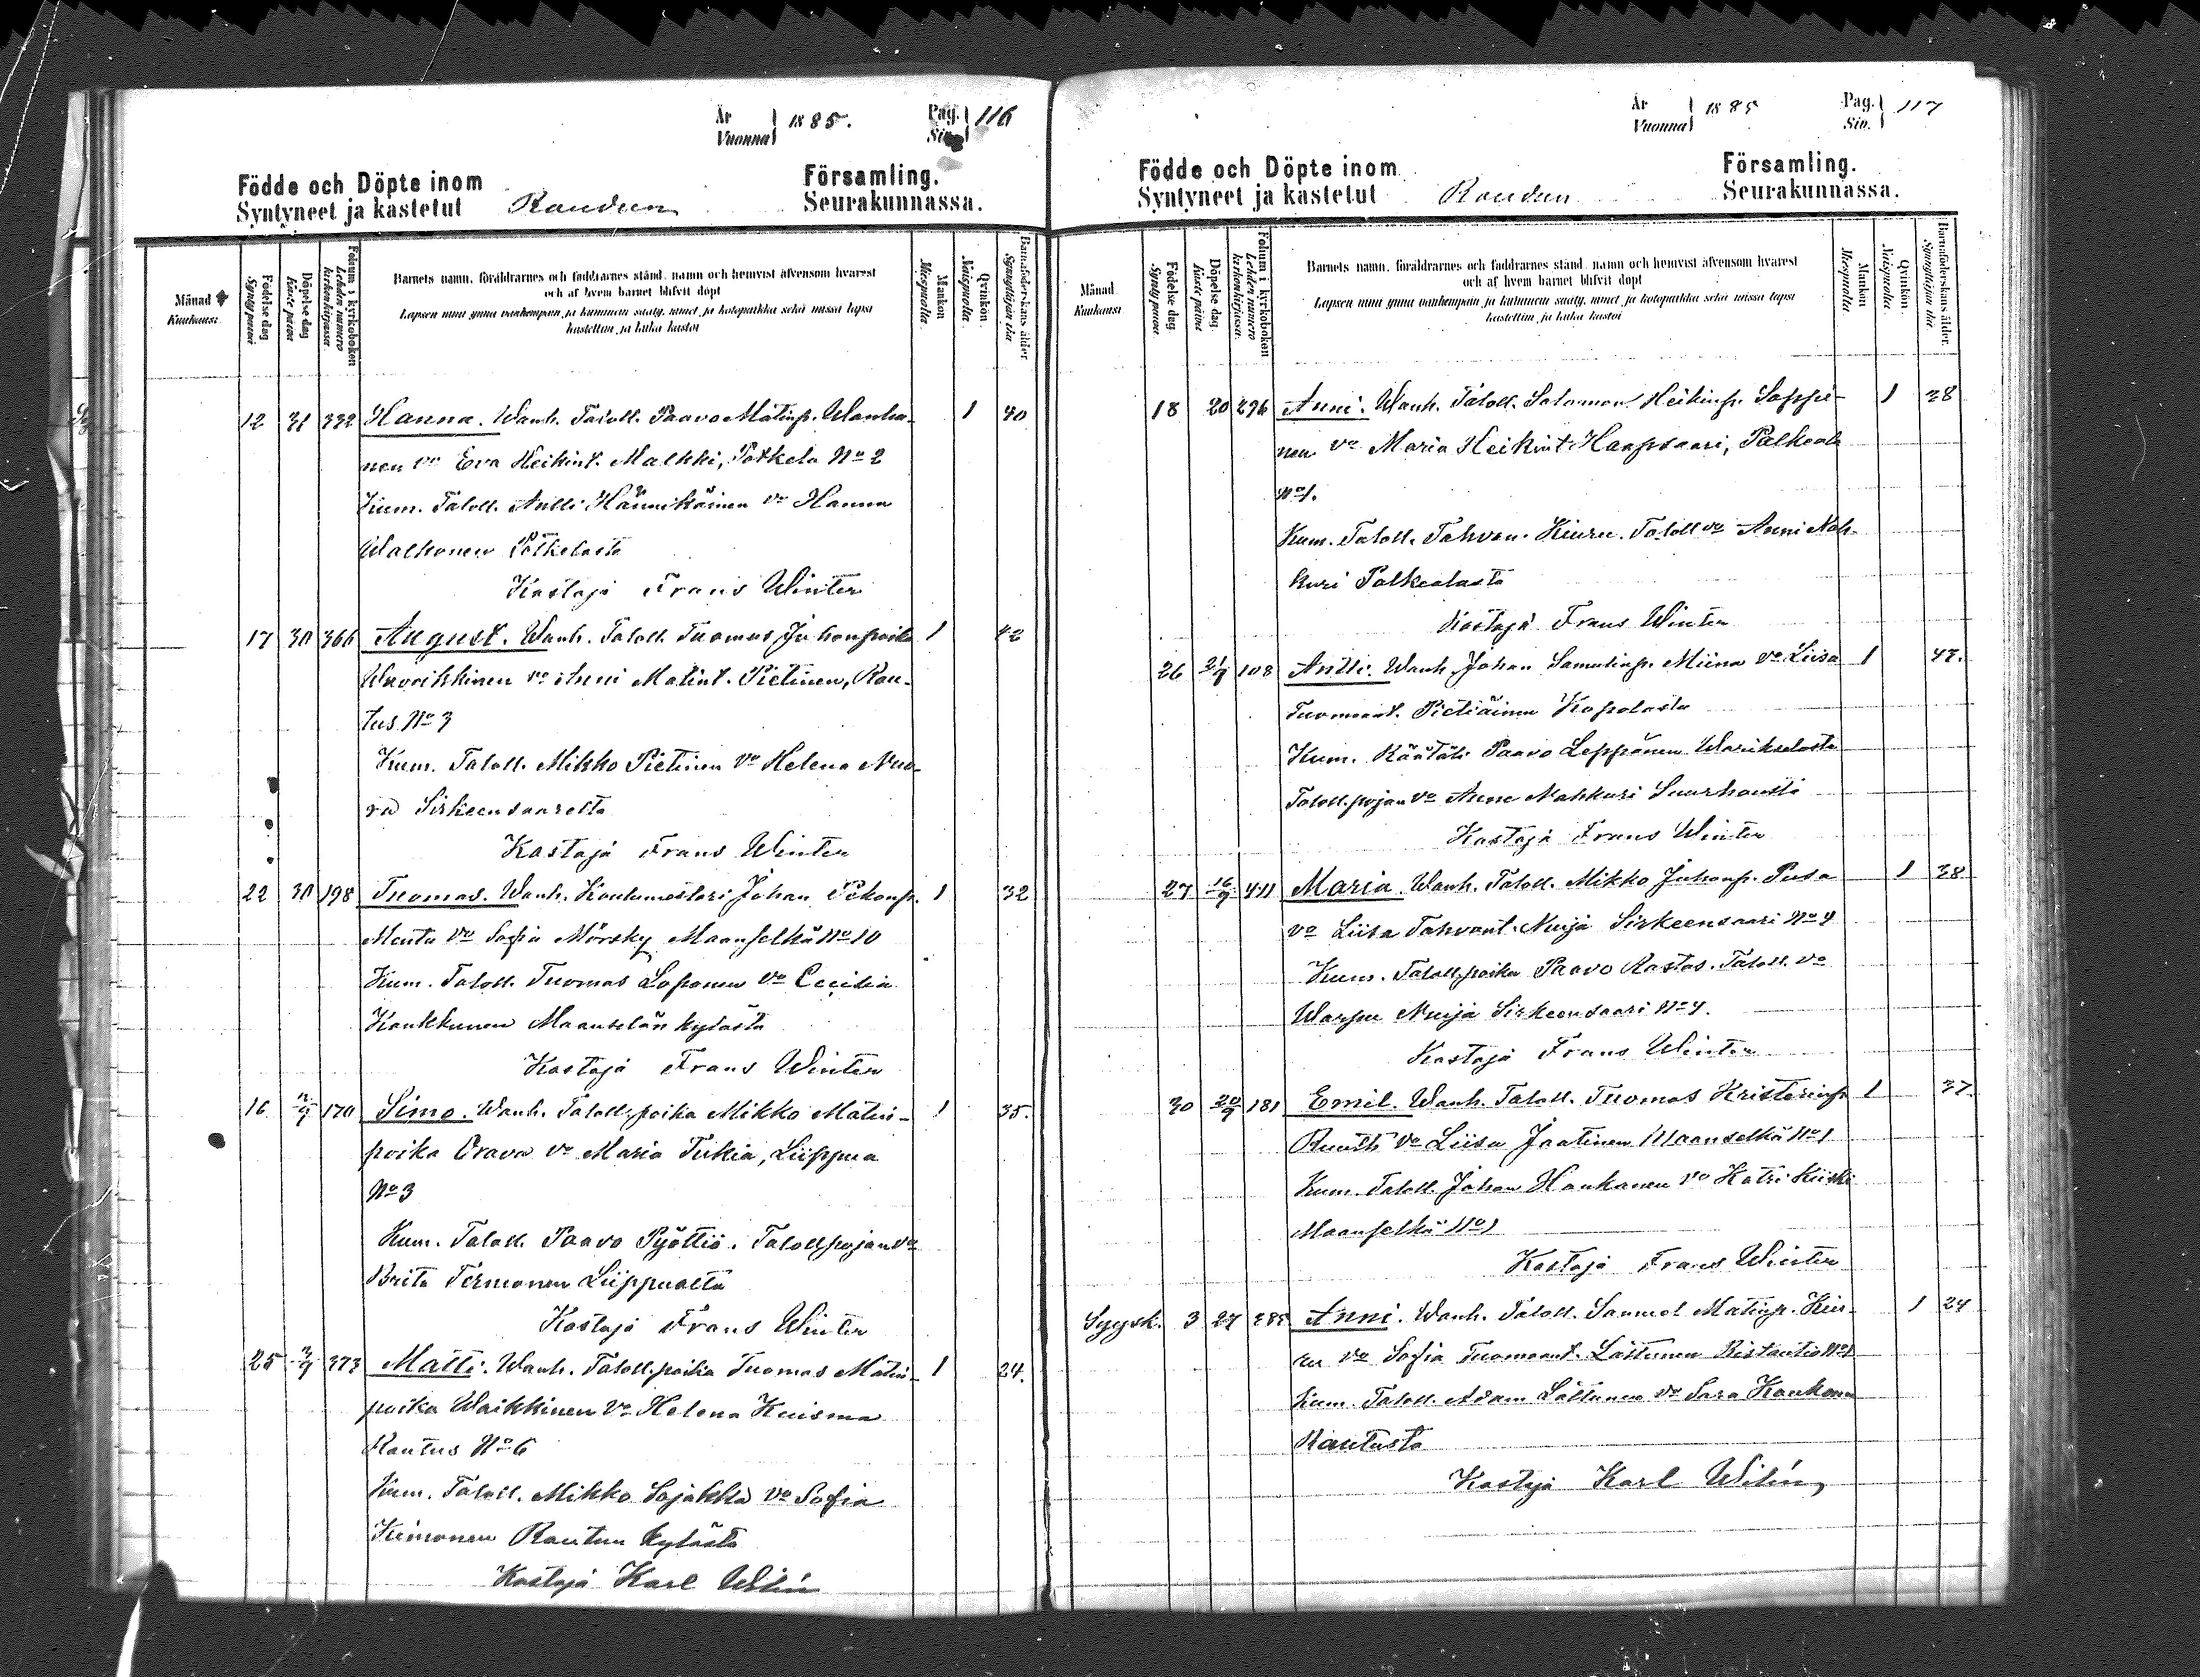 År
Vuonna 1885.
Pag.
Siv. 116
Födde och Döpte inom
Syntyneet ja kastetut
Raudun
Församling.
Seurakunnassa.
Månad
Kuukausi
Födelse dag
Synty päivä
Döpelse dag
Kaste päivä
Folium i kyrkoboken
Lehden numero kirkonkirjassa
Barnets namn, föräldrarnes och faddrarnes stånd, namn och hemvist äfvensom hvarest
och af hvem barnet blifvit döpt
Lapsen nimi ynnä vanhempain ja kummein sääty, nimet ja kotopaikka sekä missä lapsi
kastettiin ja kuka kastoi
Mankön
Miespuolia
Qvinkön.
Naispuolia
Barnaföderskans ålder
Synnyttäjän ikä
12 31 332 Hanna. Wanh. Taloll. Paavo Matinp. Wanha- 1 40
nen vo Eva Heikint. Malkki, Potkela No 2
Kum. Taloll. Antti Hännikäinen vo Hanna
Walkonen Potkelasta
Kastaja Frans Winter
17 30 366 August. Wanh. Taloll. Tuomas Juhonpoika 1 42
vo Anni Matint. Pietinen, Rau-
tus No 3
Kum. Taloll. Mikko Pietinen vo Helena Nuo-
ra Sirkeensaarelta
Kastaja Frans Winter
22 30 198 Tuomas. Wanh. Koulumestari Johan 1 32
vo Sofia Mörsky Maanselkä No 10
Kum. Taloll. Tuomas Loponen vo Cecilia
Kaukkunen Maanselän kylästä
Kastaja Frans Winter
16 2/9 170 Simo. Wanh. Taloll. poika Mikko Matin- 1 35.
poika Orava vo Maria Tukia, Liippua
No 3
Kum. Taloll. Paavo Pyöttiö. Taloll. pojan vo
Brita Termonen Liippualta
Kastaja Frans Winter
25 3/9 373 Matti. Wanh. Taloll. poika Tuomas Matin- 1 24.
poika Waikkinen vo Helena Kuisma
Rautus No 6
Kum. Taloll. Mikko Sojakka vo Sofia
Kimonen Rautun kylästä
Kastaja Karl Wilén
År
Vuonna 1885
Pag.
Siv. 117
Födde och Döpte inom
Syntyneet ja kastetut
Raudun
Församling.
Seurakunnassa.
Månad
Kuukausi
Födelse dag
Synty päivä
Döpelse dag
Kaste päivä
Folium i kyrkoboken
Lehden numero kirkonkirjassa.
Barnets namn, föräldrarnes och faddrarnes stånd, namn och hemvist äfvensom hvarest
och af hvem barnet blifvit döpt
Lapsen nimi ynnä vanhempain ja kummein sääty, nimet ja kotopaikka sekä missä lapsi
kastettiin ja kuka kastoi
Mankön
Miespuolia
Qvinkön.
Naispuolia
Barnaföderskans ålder.
Synnyttäjän ikä
18 20 296 Anni. Wanh. Taloll. Salomon Heikinp. Loppi- 1 38
nen vo Maria Heikint. Haapsaari, Palkeala
No 1.
Kum. Taloll. Tahvan. Kiuru. Taloll vo Anni Nah-
kuri Palkealasta
Kastaja Frans Winter
26 21/9 108 Antti. Wanh. Johan Samulinp. Miina vo Liisa 1 47.
Tuomaant. Pietiäinen Kopolasta
Kum. Räätäli Paavo Leppänen Warikselasta
Taloll. pojan vo Anna Nahkuri Suurhausti
Kastaja Frans Winter
27 16/9 411 Maria. Wanh. Taloll. Mikko Juhonp. Pusa 1 38
vo Liisa Tahvant. Nuija Sirkeensaari No 4
Kum. Taloll. poika Paavo Rastas. Taloll. vo
Warpu Nuija Sirkeensaari No 4.
Kastaja Frans Winter
30 20/9 181 Emil. Wanh. Taloll. Tuomas Kristerinp. 1 37.
vo Liisa Jaatinen Maanselkä No 1
Kum. Taloll. Johan Haukanen vo Katri Kiiski
Maanselkä No 1
Kastaja Frans Winter
Syysk. 3 27 285 Anni. Wanh. Taloll. Samuel Matinp. Kiu- 1 24
ru vo Sofia Tuomaant. Lättunen Ristautio No 1
Kum. Taloll. Adam Lättunen vo Sara Kaukonen
Rautusta
Kastaja Karl Wilén